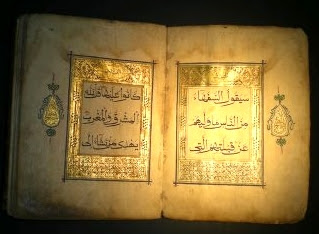 سيقول السفهاء
من الناس ما وليهم
عن قبلتهم التى
كانوا عليها قل لله
المشرق والمغرب
يهدى من يشاء الى